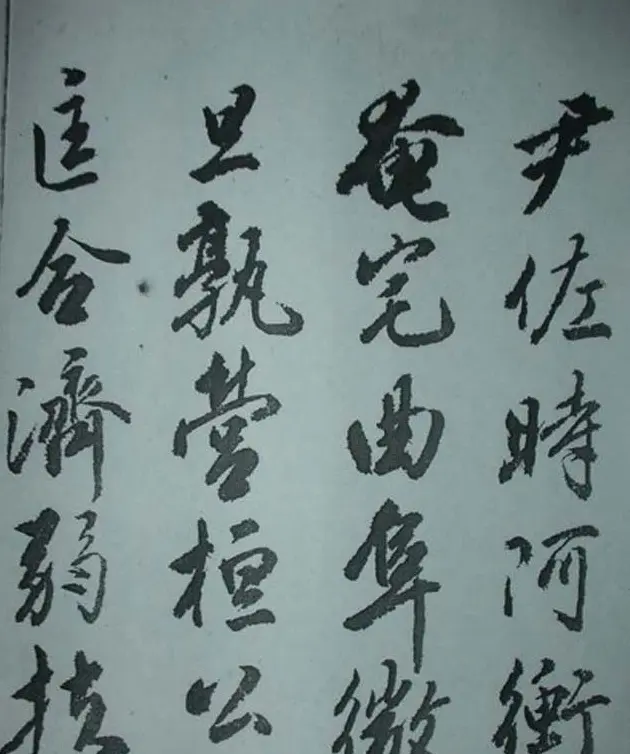 尹佐時阿衡
奄宅曲阜微
旦孰營桓公
匡合濟弱扶